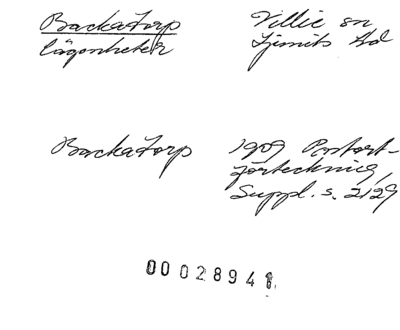 Backatorp Villie sn
lägenheter Ljunits hd
Backatorp 1909 Postort-
förteckning,
Suppl. s. 2129
00028941